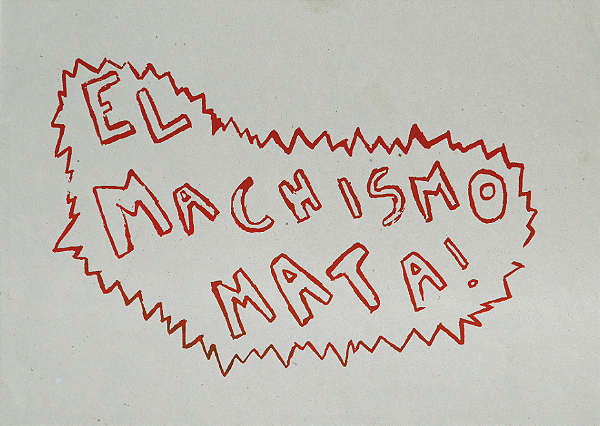 EL
MACHISMO
MATA!